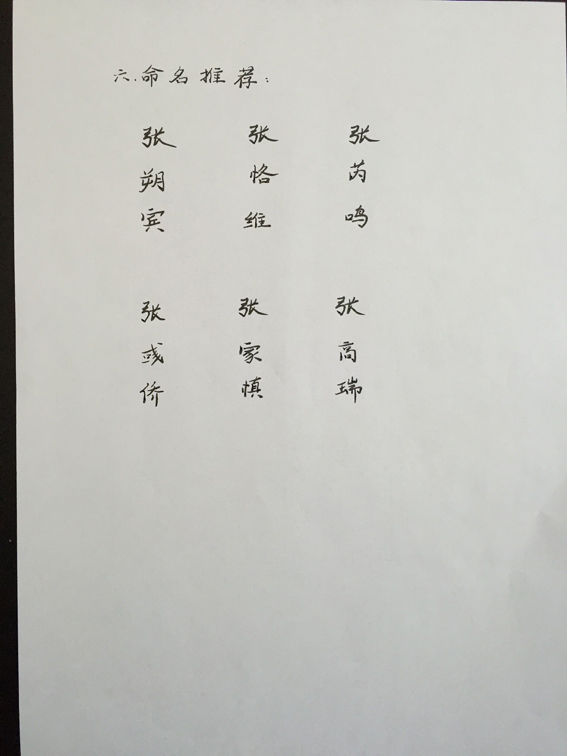 六.命名推荐:
张朔宾
张恪维
张芮鸣
张彧侨
张家慎
张高瑞